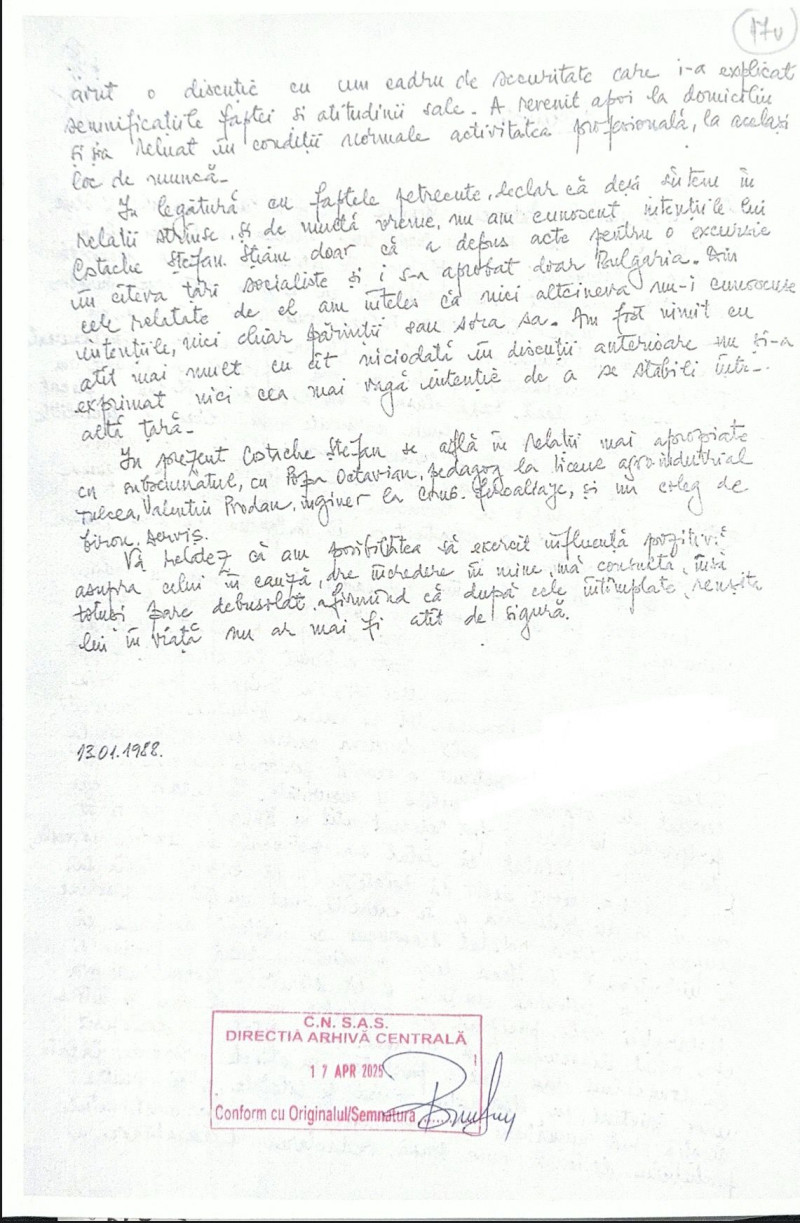 17v
avut o discuție cu un cadru de securitate care i-a explicat
semnificațiile faptei si atitudinii sale. A revenit apoi la domiciliu
și și-a reluat în condiții normale activitatea profesională, la același
loc de muncă.
In legătură cu faptele petrecute, declar că deși sîntem în
relații strînse și de multă vreme, nu am cunoscut intențiile lui
Costache Ștefan. Știam doar că a depus acte pentru o excursie
în cîteva țări socialiste și i s-a aprobat doar Bulgaria. Din
cele relatate de el am înțeles că nici altcineva nu-i cunoscuse
intențiile, nici chiar părinții sau sora sa. Am fost uimit cu
atît mai mult cu cît niciodată în discuții anterioare nu și-a
exprimat nici cea mai vagă intenție de a se stabili într-
altă țară.
In prezent Costache Ștefan se află în relații mai apropiate
cu subsemnatul, cu Popa Octavian, pedagog la liceul agroindustrial
Tulcea, Valentin Prodan, inginer la Comb. feroaliaje, și un coleg de
birou, serviș.
Vă relatez că am posibilitatea să exercit influență pozitivă
asupra celui în cauză, are încredere în mine, mă consultă, însă
totuși pare debusolat afirmînd că după cele întîmplate reușita
lui în viață nu ar mai fi atît de sigură.
13.01.1988.
C.N. S.A.S.
DIRECTIA ARHIVĂ CENTRALĂ
17 APR 2025
Conform cu Originalul/Semnatura